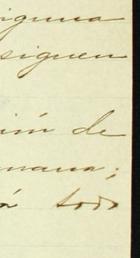 iguna
siguen
ión de
mana;
á todo